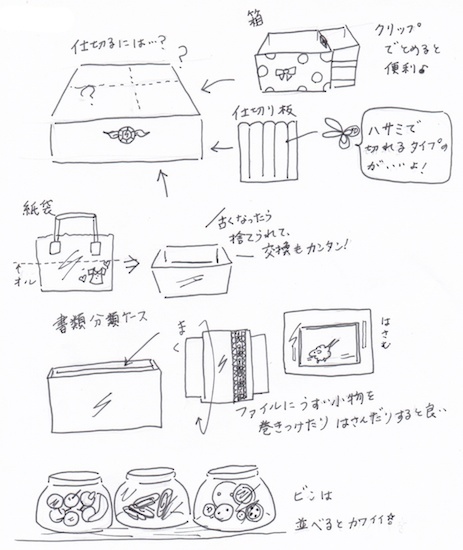 仕切るには…?
?
?
箱
クリップ
でとめると
便利♪
仕切り板
ハサミで
切れるタイプの
がいいよ!
紙袋
オル
古くなったら
捨てられて、
交換もカンタン!
書類分類ケース
まく
はさむ
ファイルにうすい小物を
巻きつけたり はさんだりすると良い
ビンは
並べるとカワイイ